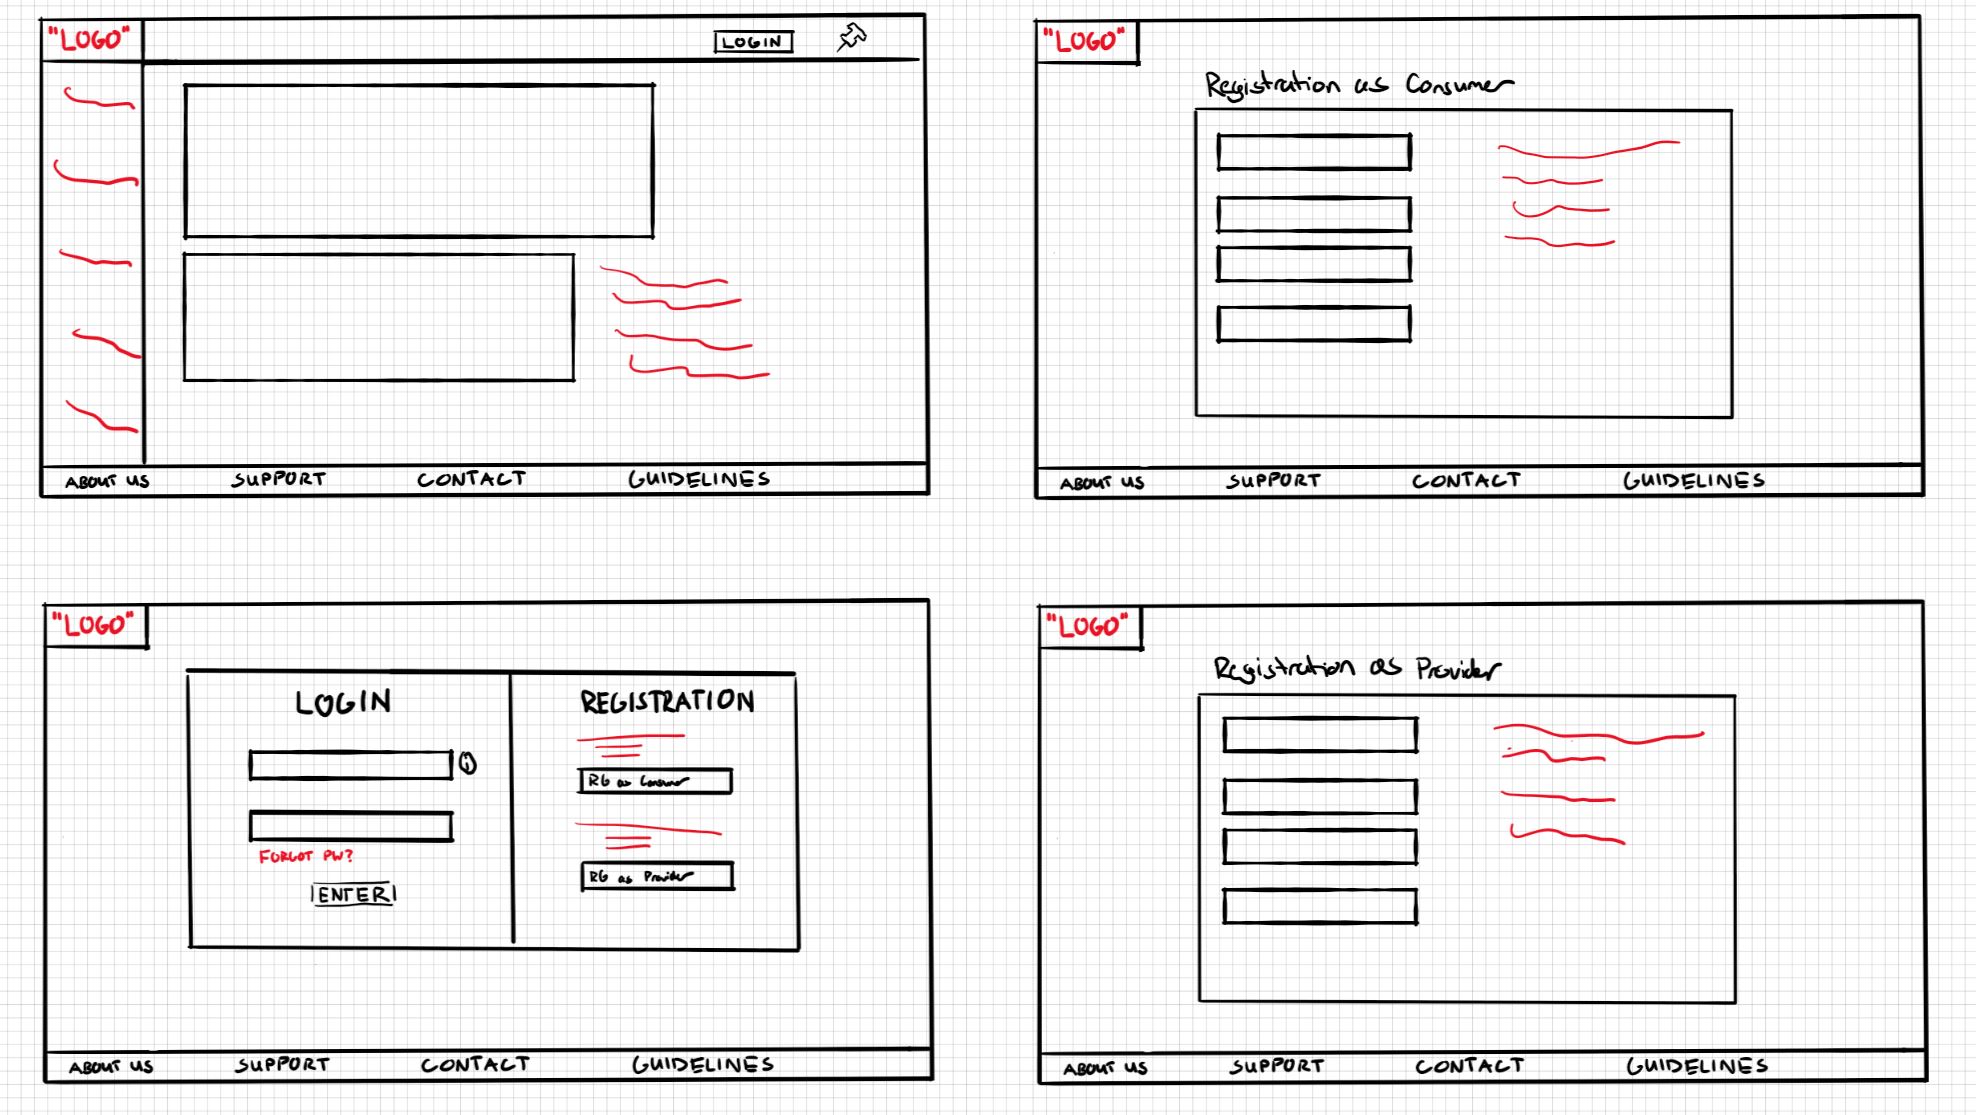 "LOGO"
LOGIN
ABOUT US SUPPORT CONTACT GUIDELINES
"LOGO"
Registration as Consumer
ABOUT US SUPPORT CONTACT GUIDELINES
"LOGO"
LOGIN
i
FORGOT PW?
ENTER
REGISTRATION
RG as Consumer
RG as Provider
ABOUT US SUPPORT CONTACT GUIDELINES
"LOGO"
Registration as Provider
ABOUT US SUPPORT CONTACT GUIDELINES